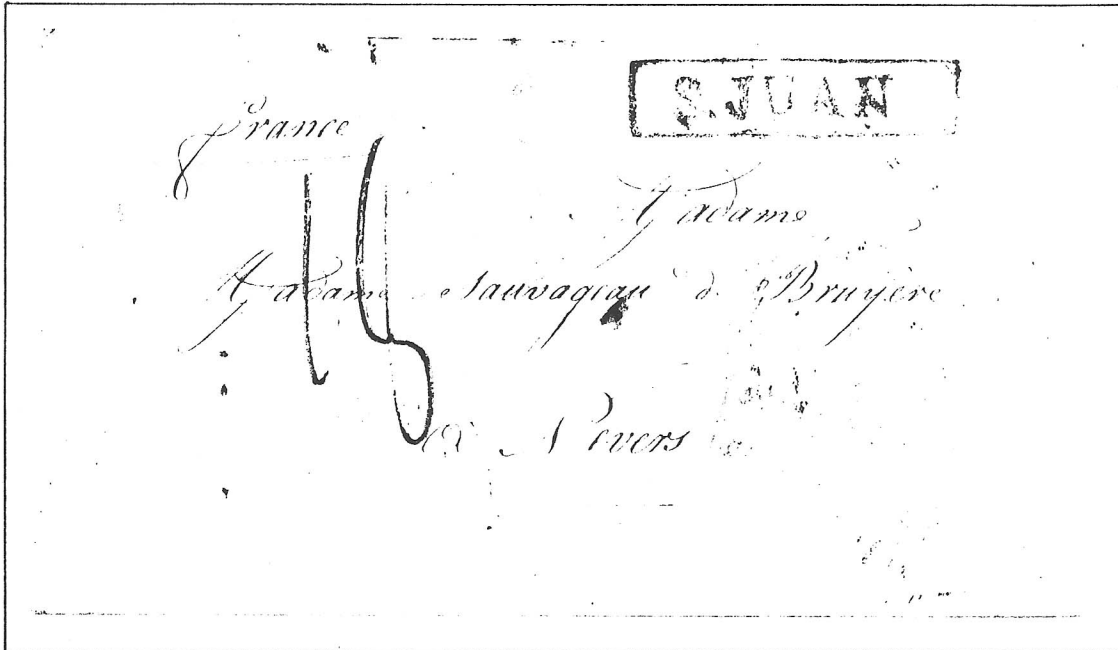 S.JUAN
France
Madame
Madame Sauvageau de Bruyère
15
à Nevers